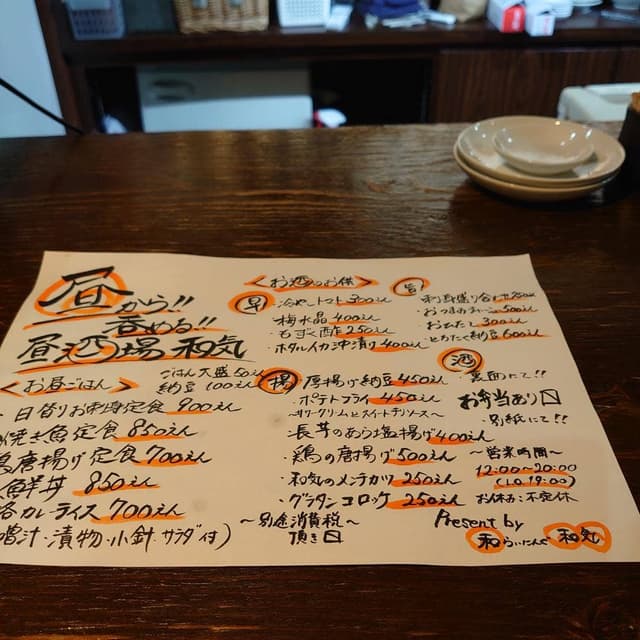 昼から!!
呑める!!
昼酒場 和気
<お昼ごはん>
ごはん大盛50えん
納豆100えん
日替りお刺身定食 900えん
焼き魚定食 850えん
唐揚げ定食 700えん
海鮮丼 850えん
カレーライス 700えん
味噌汁・漬物・小針・サラダ付)
<お酒のお供>
早
・冷やしトマト 300えん
・梅水晶 400えん
・もずく酢 250えん
・ホタルイカ沖漬け 400えん
揚
・厚揚げ納豆 450えん
・ポテトフライ 450えん
〜サワークリームとスイートチリソース〜
・長芋のあら塩揚げ 400えん
・鶏の唐揚げ 500えん
・和気のメンチカツ 250えん
・グラタンコロッケ 250えん
〜別途消費税〜
頂き〼
旨
・刺身盛り合せ 850えん
500えん
・おしんこ 300えん
納豆 600えん
酒
・裏面にて!!
お弁当あり〼
・別紙にて!!
〜営業時間〜
12:00〜20:00
(LO.19:00)
お休み:不定休
Present by
和らいだんぐ 和気